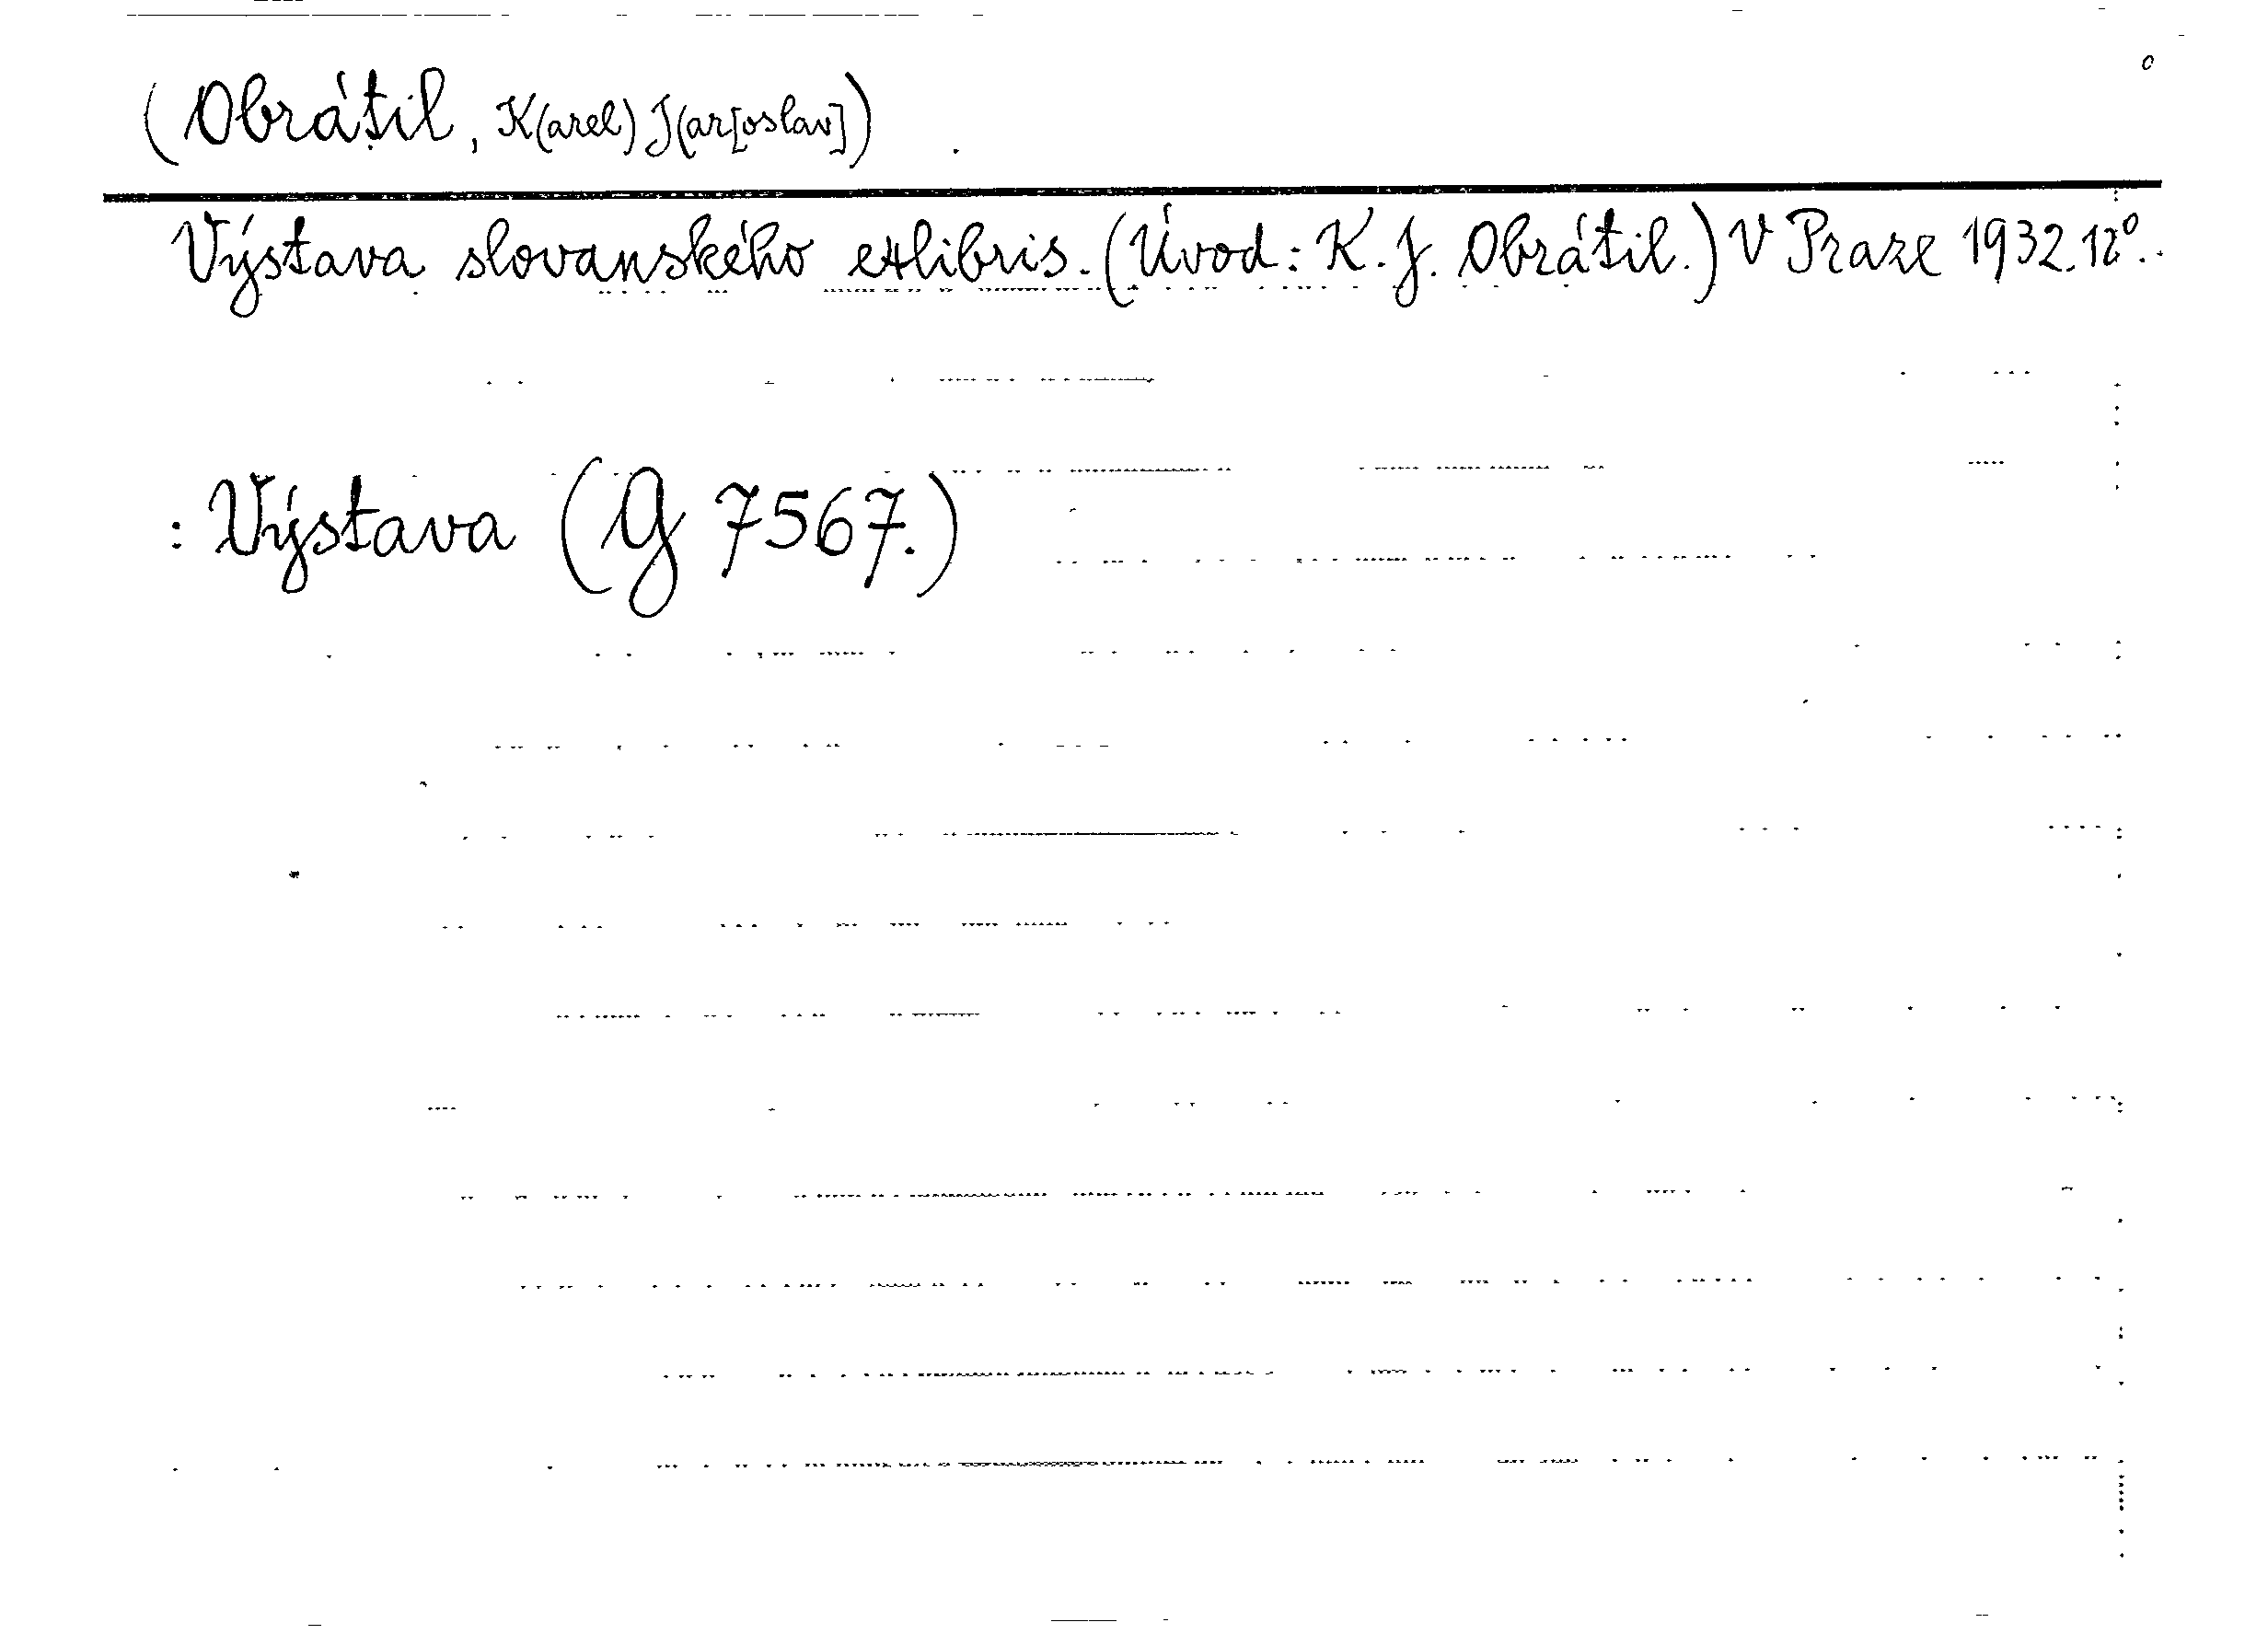 (Obrátil, K(arel) J(ar[oslav])
Výstava slovanského exlibris. (Úvod: K. J. Obrátil.) V Praze 1932. 12°.
: Výstava (G 7567.)